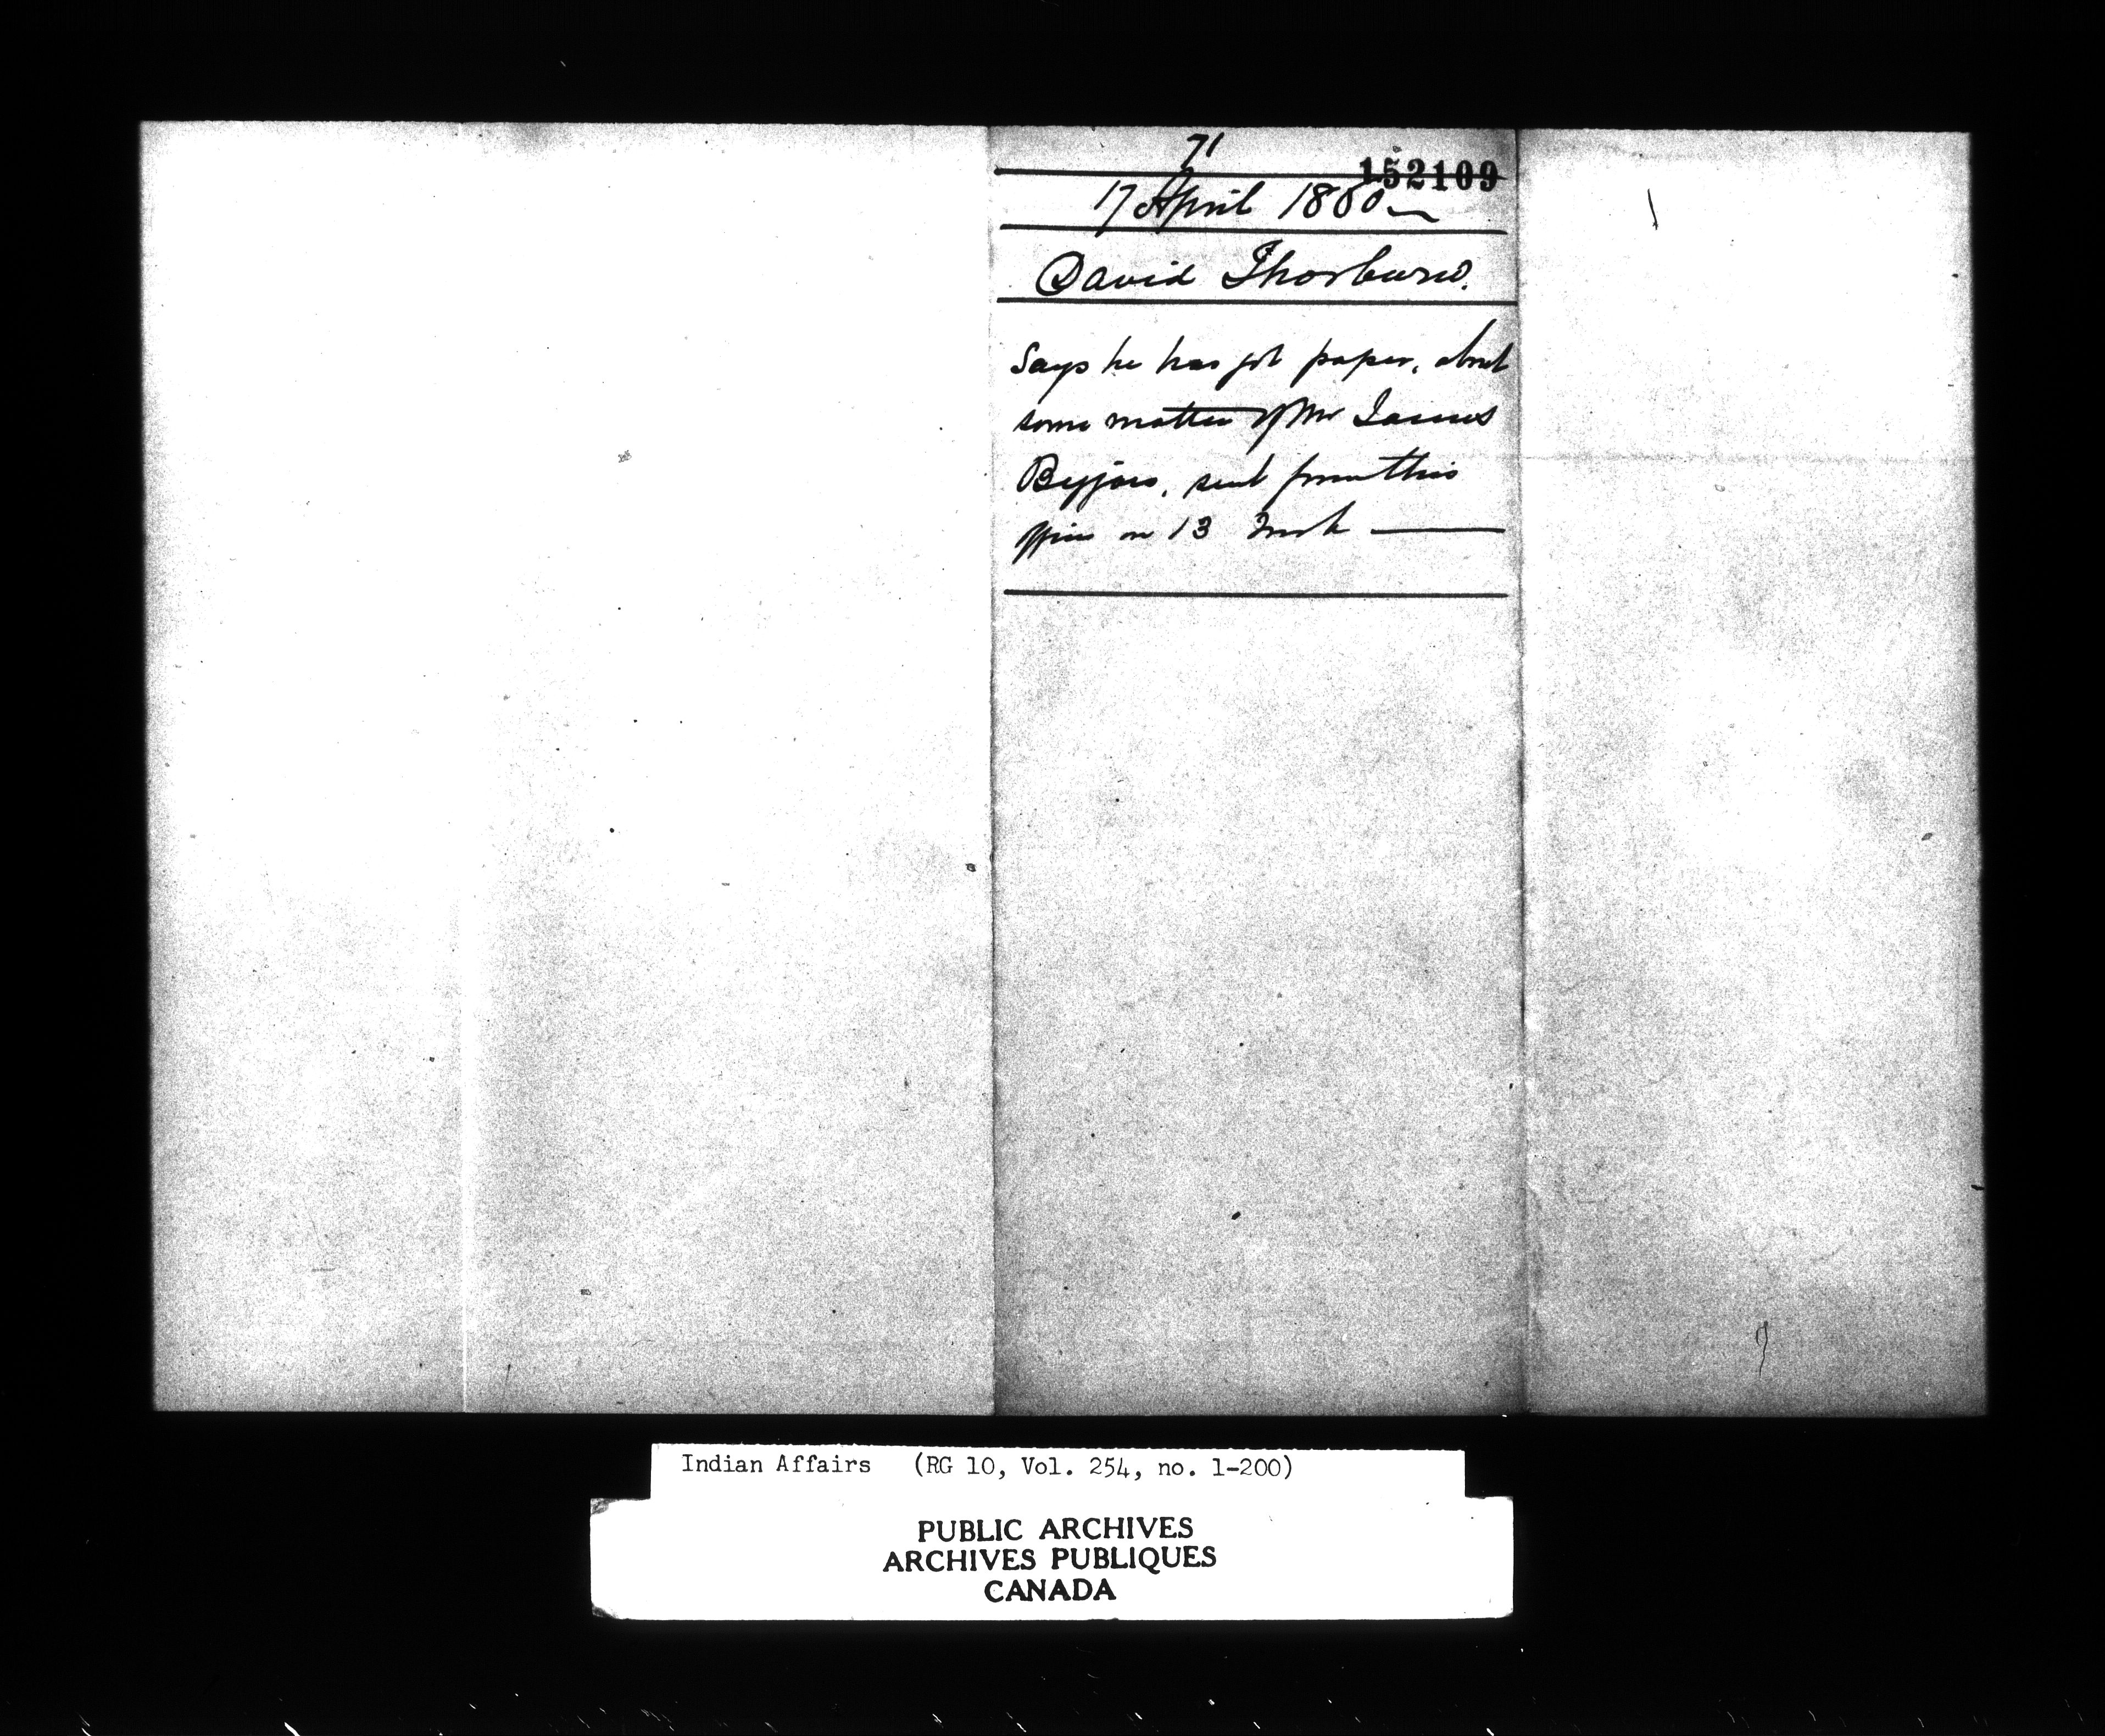 71
152109
17 April 1860
David Thorburn.
Says he has got paper, about
some matter of Mr James
sent from this
office on 13 Inst
Indian Affairs (RG 10, Vol. 254, no. 1-200)
PUBLIC ARCHIVES
ARCHIVES PUBLIQUES
CANADA